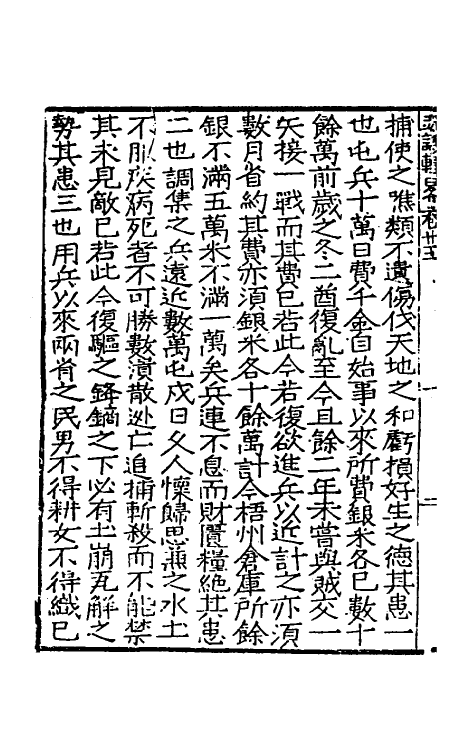 捕使之噍類不遺傷伐天地之和虧損好生之德其患一
也屯兵十萬日費千金自始事以來所費銀米各已數十
餘萬前歲之冬二酋復亂至今且餘二年未嘗與賊交一
矢接一戰而其費已若此今若復欲進兵以近計之亦須
數月省約其費亦須銀米各十餘萬計今梧州倉庫所餘
銀不滿五萬米不滿一萬矣兵連不息而財匱糧絕其患
二也調集之兵遠近數萬屯戍日久人懷歸思兼之水土
不服疾病死者不可勝數潰散逃亡追捕斬殺而不能禁
其未見敵已若此今復驅之鋒鏑之下必有土崩瓦解之
勢其患三也用兵以來兩省之民男不得耕女不得織已